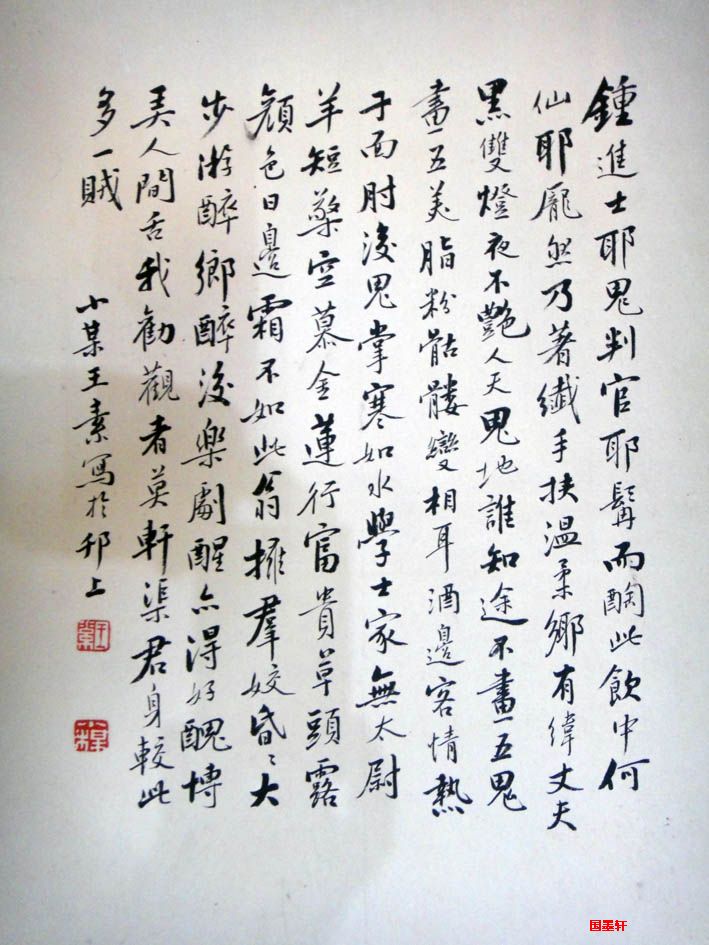 鍾進士耶鬼判官耶髯而酶此飲中何
仙耶龎然乃著纖手扶溫柔鄉有偉丈夫
黑雙燈夜不艷人天鬼地誰知途不畫五鬼
畫五美脂粉骷髏變相耳酒邊客情熱
于面肘後鬼掌寒如冰學士家無太尉
羊短檠空慕金蓮行富貴草頭露
顏色日邊霜不如此翁擁羣姣昏〻大
步游醉鄉醉後樂劇醒亦得好醜博
美人間舌我勸觀者莫軒渠君身較此
多一賊
小某王素寫於邗上
王素
国墨轩